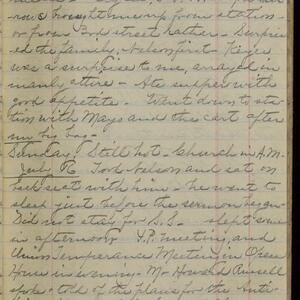 nows brought me up from station
or from Ford street rather - Surpris-
ed the family, Nelson first - Roger
was a surprise to me, arrayed in
manly attire - Ate supper with
good appetite. Went down to sta-
tion with Mayo and the cart after
my big bag -
Sunday, Still hot - Church in A.M.
July 8 Nelson and sat on
back seat with him - he went to
sleep just before the sermon began -
Did not stay for S.S. slept some
in afternoon Y.P. meeting, and
Union Temperance Meeting in Opera
House in evening - Mr Howard Russell
spoke & told of the plans for the Anti-